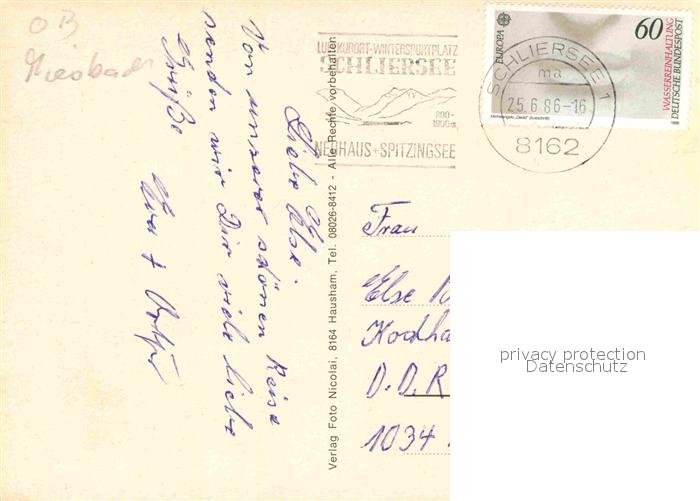 OB
Miesbach
Liebe Else.
Von unserer schönen Reise
senden wir Dir viele liebe
Grüße
Eva +
Verlag Foto Nicolai, 8164 Hausham, Tel. 08026-8412 - Alle Rechte vorbehalten
LUFTKURORT-WINTERSPORTPLATZ
SCHLIERSEE
800-
1900m
NEUHAUS+SPITZINGSEE
SCHLIERSEE 1
ma
25.6.86-16
8162
EUROPA
60
WASSERREINHALTUNG
DEUTSCHE BUNDESPOST
Frau
Else
D.D.R
1034
privacy protection
Datenschutz